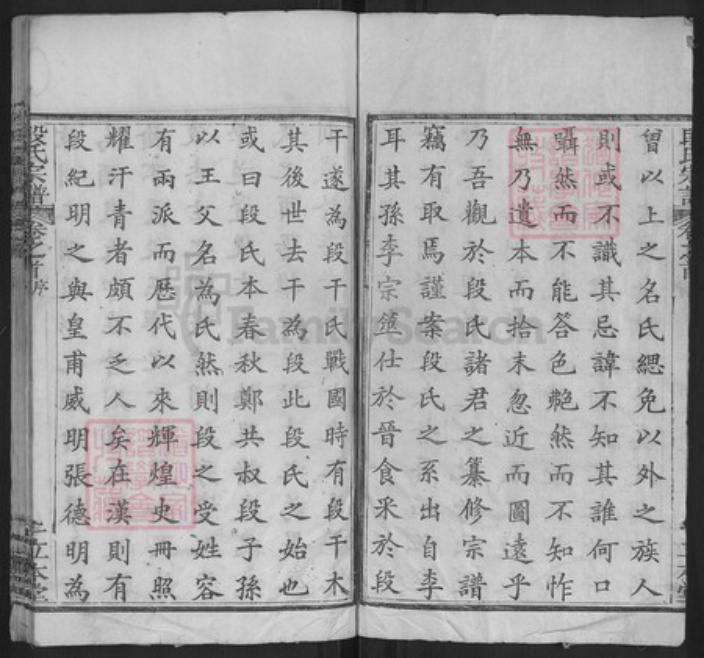 曾以上之名氏緦免以外之族人
則或不識其忌諱不知其誰何口
躡然而不能答色赩然而不知怍
無乃遺本而拾末忽近而圖遠乎
乃吾觀於段氏諸君之纂修宗譜
竊有取焉謹案段氏之系出自李
耳其孫李宗筮仕於晉食采於段
干遂為段干氏戰國時有段干木
其後世去干為段此段氏之始也
或曰段氏本春秋鄭共叔段子孫
以王父名為氏然則段之受姓容
有兩派而歷代以來輝煌史冊照
耀汗青者頗不乏人矣在漢則有
段紀明之與皇甫威明張德明為
段氏宗譜 卷之首 序
立本堂
FamilySearch